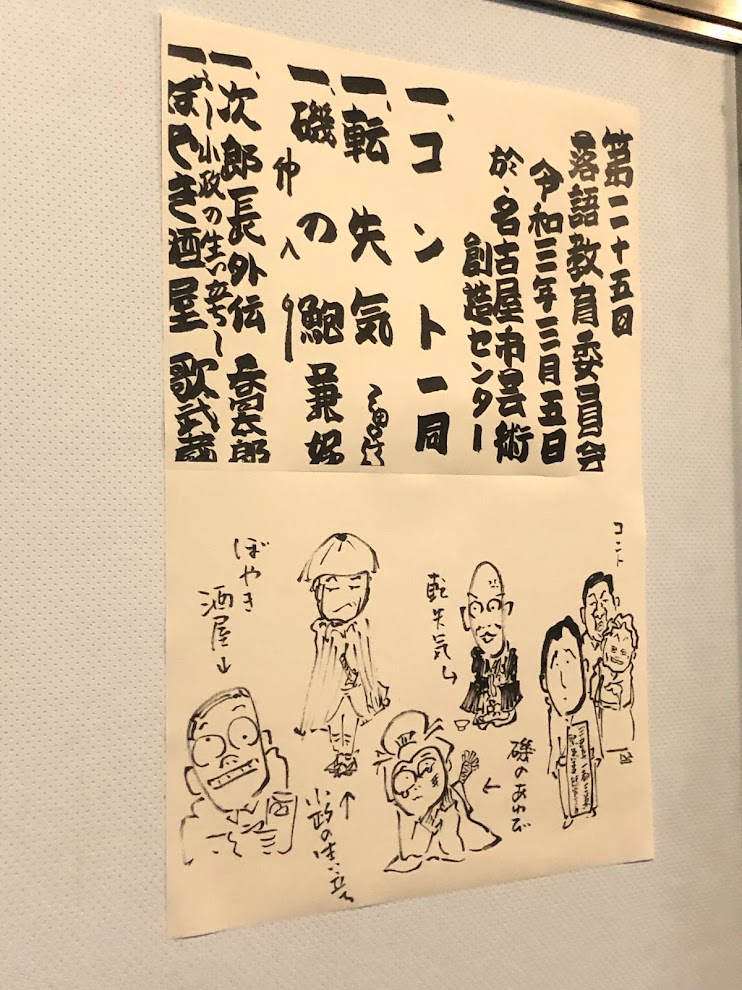 第二十五回
落語教育委員会
令和三年三月五日
於・名古屋市芸術
創造センター
一、コント 一同
一、転失気
一、磯の鮑 兼好
仲入り
一、次郎長外伝 喬太郎
〜小政の生い立ち〜
一、ぼやき酒屋 歌武蔵
コント
転失気
磯のあわび
小政の生い立ち
ぼやき
酒屋